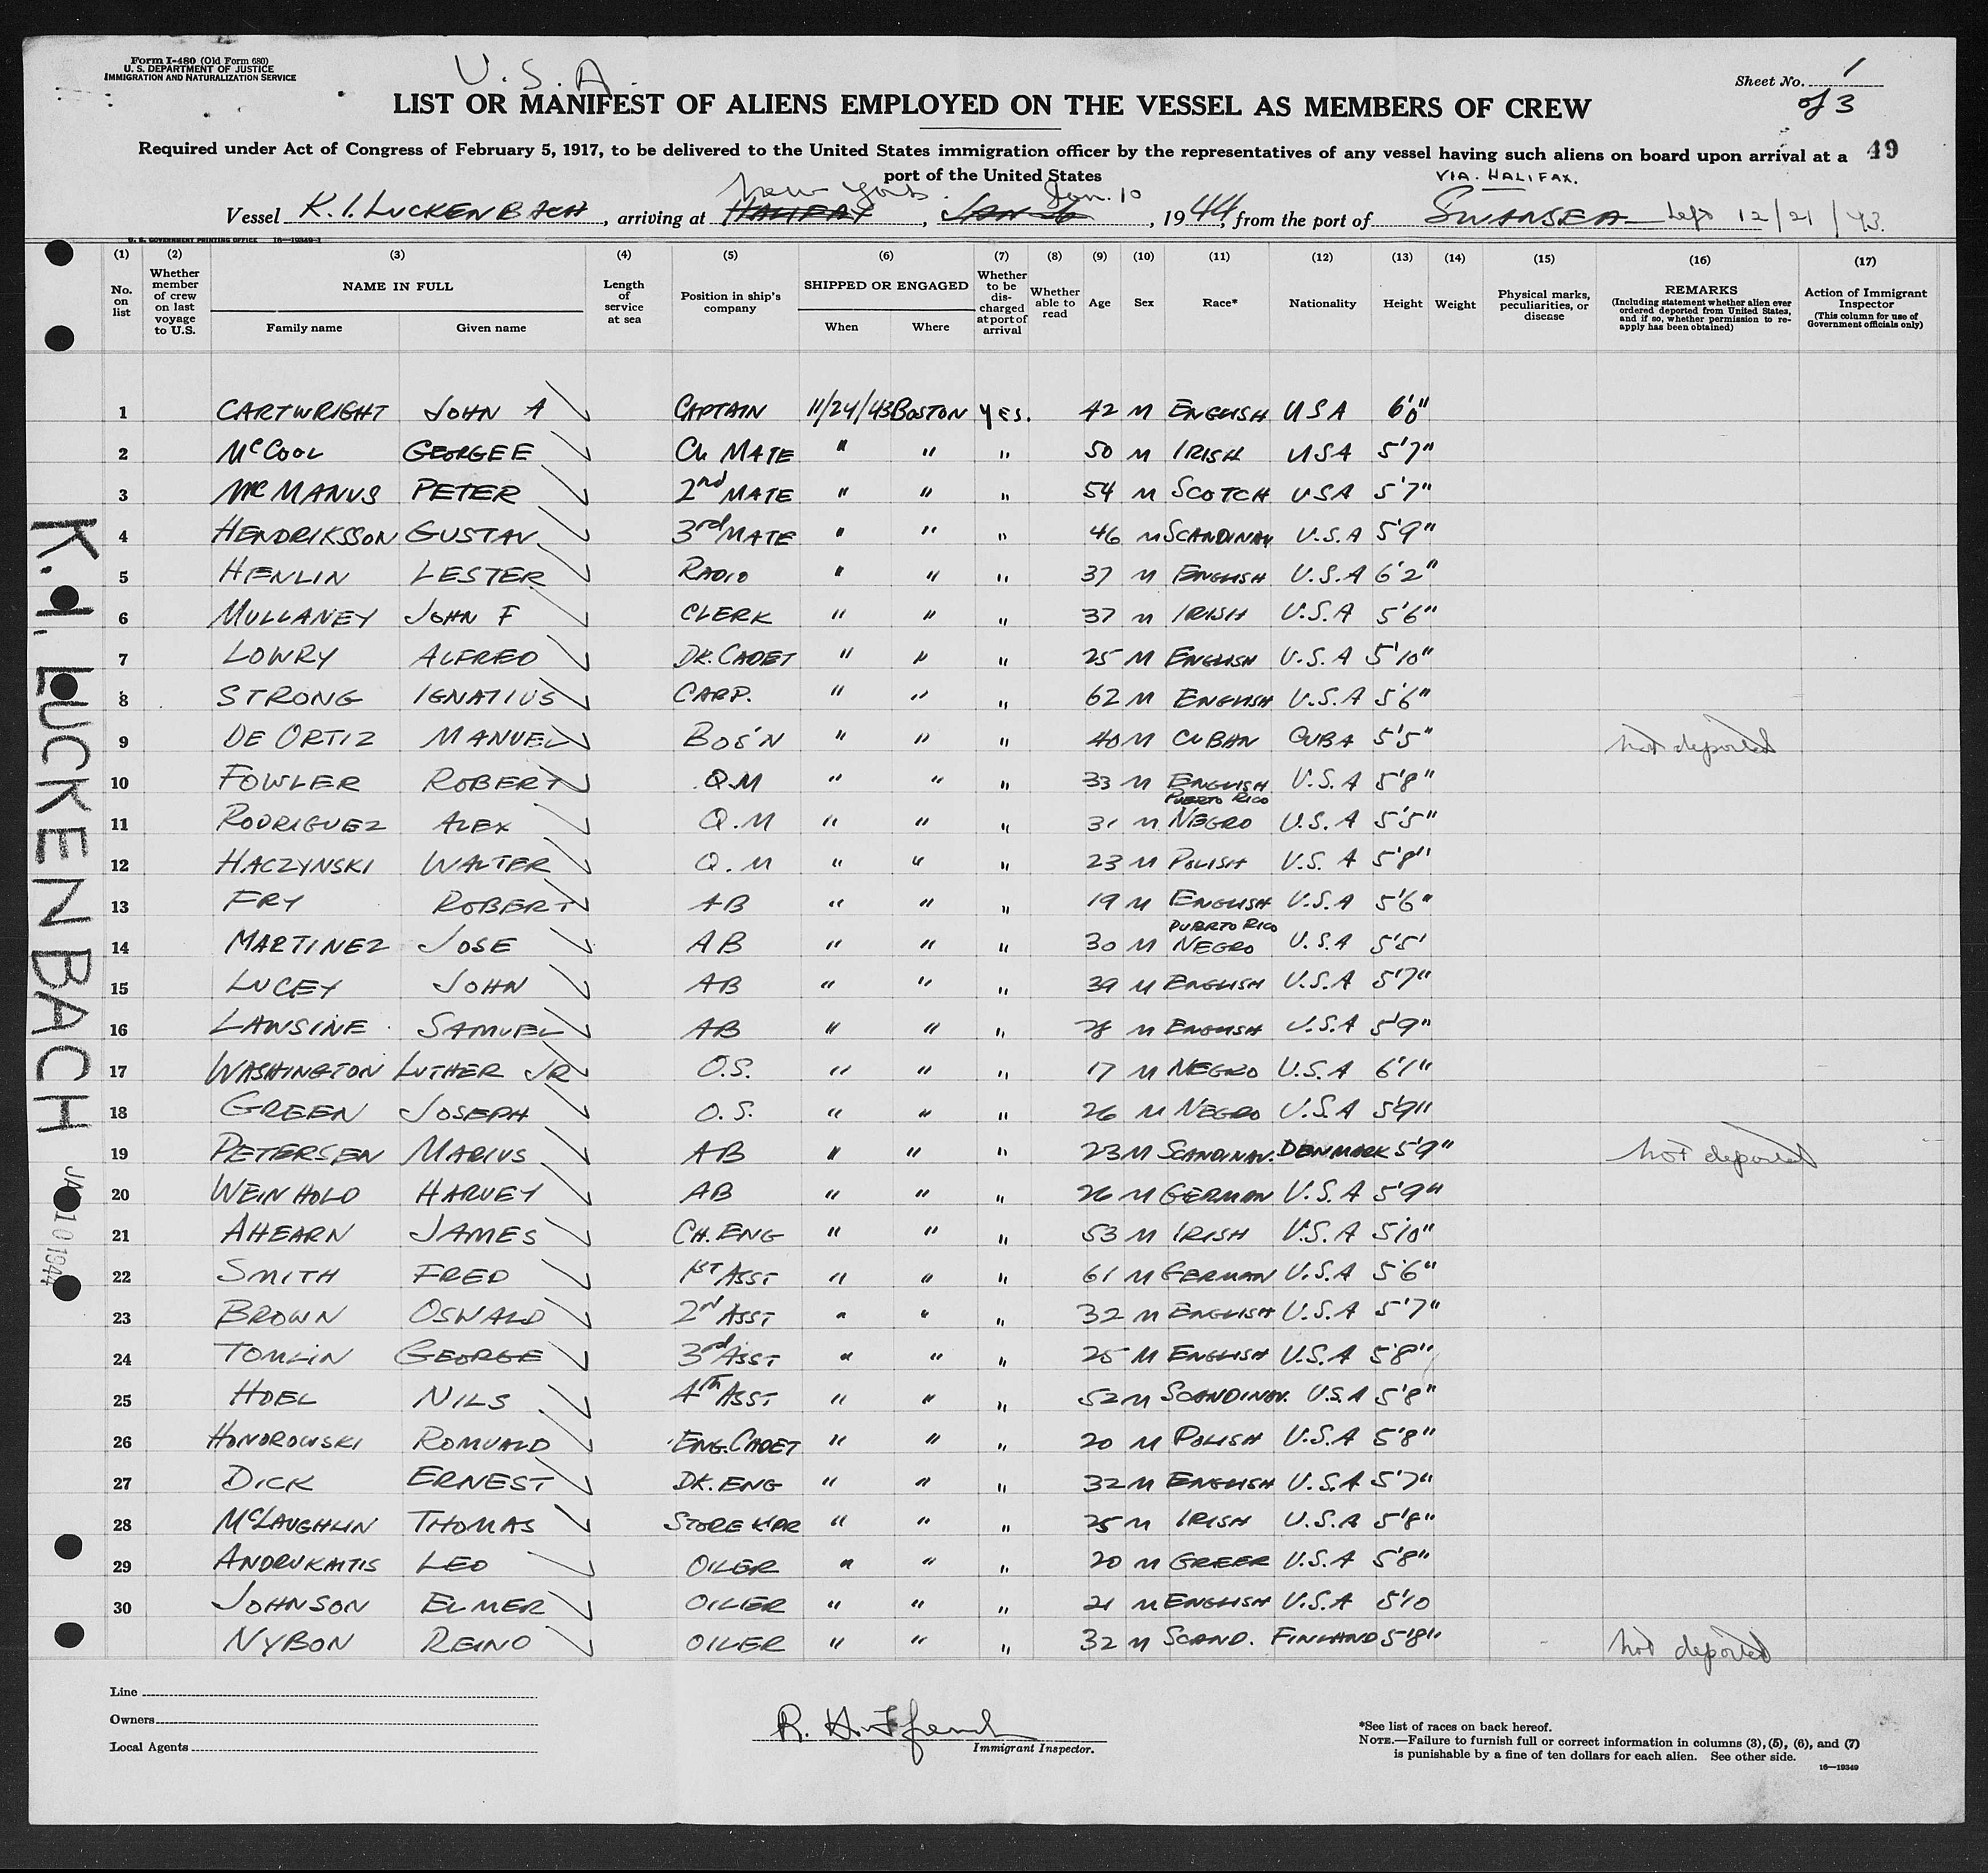 Form I-480 (Old Form 680)
U. S. DEPARTMENT OF JUSTICE
IMMIGRATION AND NATURALIZATION SERVICE
U. S. A.
Sheet No. 1
of 3
LIST OR MANIFEST OF ALIENS EMPLOYED ON THE VESSEL AS MEMBERS OF CREW
49
Required under Act of Congress of February 5, 1917, to be delivered to the United States immigration officer by the representatives of any vessel having such aliens on board upon arrival at a
port of the United States
VIA. HALIFAX.
New York. Jan. 10
Vessel K. I. LUCKENBACH, arriving at HALIFAX, JAN 6, 1944, from the port of SWANSEA Left 12/21/43.
U. S. GOVERNMENT PRINTING OFFICE 16—19349-1
(1) (2) (3) (4) (5) (6) (7) (8) (9) (10) (11) (12) (13) (14) (15) (16) (17)
No. on list
Whether member of crew on last voyage to U.S.
NAME IN FULL
Family name Given name
Length of service at sea
Position in ship's company
SHIPPED OR ENGAGED
When Where
Whether to be discharged at port of arrival
Whether able to read
Age Sex Race* Nationality Height Weight
Physical marks, peculiarities, or disease
REMARKS
(Including statement whether alien ever ordered deported from United States, and if so, whether permission to reapply has been obtained)
Action of Immigrant Inspector
(This column for use of Government officials only)
1 CARTWRIGHT JOHN A CAPTAIN 11/24/43 BOSTON YES. 42 M ENGLISH USA 6'0"
2 McCOOL GEORGE E CH MATE " " " 50 M IRISH USA 5'7"
3 McMANUS PETER 2nd MATE " " " 54 M SCOTCH USA 5'7"
4 HENDRIKSSON GUSTAV 3rd MATE " " " 46 M SCANDINAV U.S.A 5'9"
5 HENLIN LESTER RADIO " " " 37 M ENGLISH U.S.A 6'2"
6 MULLANEY JOHN F CLERK " " " 37 M IRISH U.S.A 5'6"
7 LOWRY ALFRED DK. CADET " " " 25 M ENGLISH U.S.A 5'10"
8 STRONG IGNATIUS CARP. " " " 62 M ENGLISH U.S.A 5'6"
9 DE ORTIZ MANUEL BOS'N " " " 40 M CUBAN CUBA 5'5" not deported
10 FOWLER ROBERT Q.M " " " 33 M ENGLISH U.S.A 5'8"
PUERTO RICO
11 RODRIGUEZ ALEX Q.M " " " 31 M NEGRO U.S.A 5'5"
12 HACZYNSKI WALTER Q.M " " " 23 M POLISH U.S.A 5'8"
13 FRY ROBERT AB " " " 19 M ENGLISH U.S.A 5'6"
PUERTO RICO
14 MARTINEZ JOSE AB " " " 30 M NEGRO U.S.A 5'5'
15 LUCEY JOHN AB " " " 39 M ENGLISH U.S.A 5'7"
16 LAWSINE SAMUEL AB " " " 28 M ENGLISH U.S.A 5'9"
17 WASHINGTON LUTHER JR O.S. " " " 17 M NEGRO U.S.A 6'1"
18 GREEN JOSEPH O.S. " " " 26 M NEGRO U.S.A 5'9"
19 PETERSEN MARIUS AB " " " 23 M SCANDINAV. DENMARK 5'9" not deported
20 WEINHOLD HARVEY AB " " " 26 M GERMAN U.S.A 5'9"
21 AHEARN JAMES CH. ENG " " " 53 M IRISH U.S.A 5'10"
22 SMITH FRED 1ST ASST " " " 61 M GERMAN U.S.A 5'6"
23 BROWN OSWALD 2nd ASST " " " 32 M ENGLISH U.S.A 5'7"
24 TOMLIN GEORGE 3rd ASST " " " 25 M ENGLISH U.S.A 5'8"
25 HOEL NILS 4th ASST " " " 52 M SCANDINAV. U.S.A 5'8"
26 HONOROWSKI ROMUALD ENG. CADET " " " 20 M POLISH U.S.A 5'8"
27 DICK ERNEST DK. ENG " " " 32 M ENGLISH U.S.A 5'7"
28 McLAUGHLIN THOMAS STORE KPR " " " 25 M IRISH U.S.A 5'8"
29 ANDRUKAITIS LEO OILER " " " 20 M GREEK U.S.A 5'8"
30 JOHNSON ELMER OILER " " " 21 M ENGLISH U.S.A 5'10
NYBON REINO OILER " " " 32 M SCAND. FINLAND 5'8" not deported
K. I. LUCKENBACH
JAN 10 1944
Line
Owners
Local Agents
Immigrant Inspector.
*See list of races on back hereof.
NOTE.—Failure to furnish full or correct information in columns (3), (5), (6), and (7)
is punishable by a fine of ten dollars for each alien. See other side.
16—19349